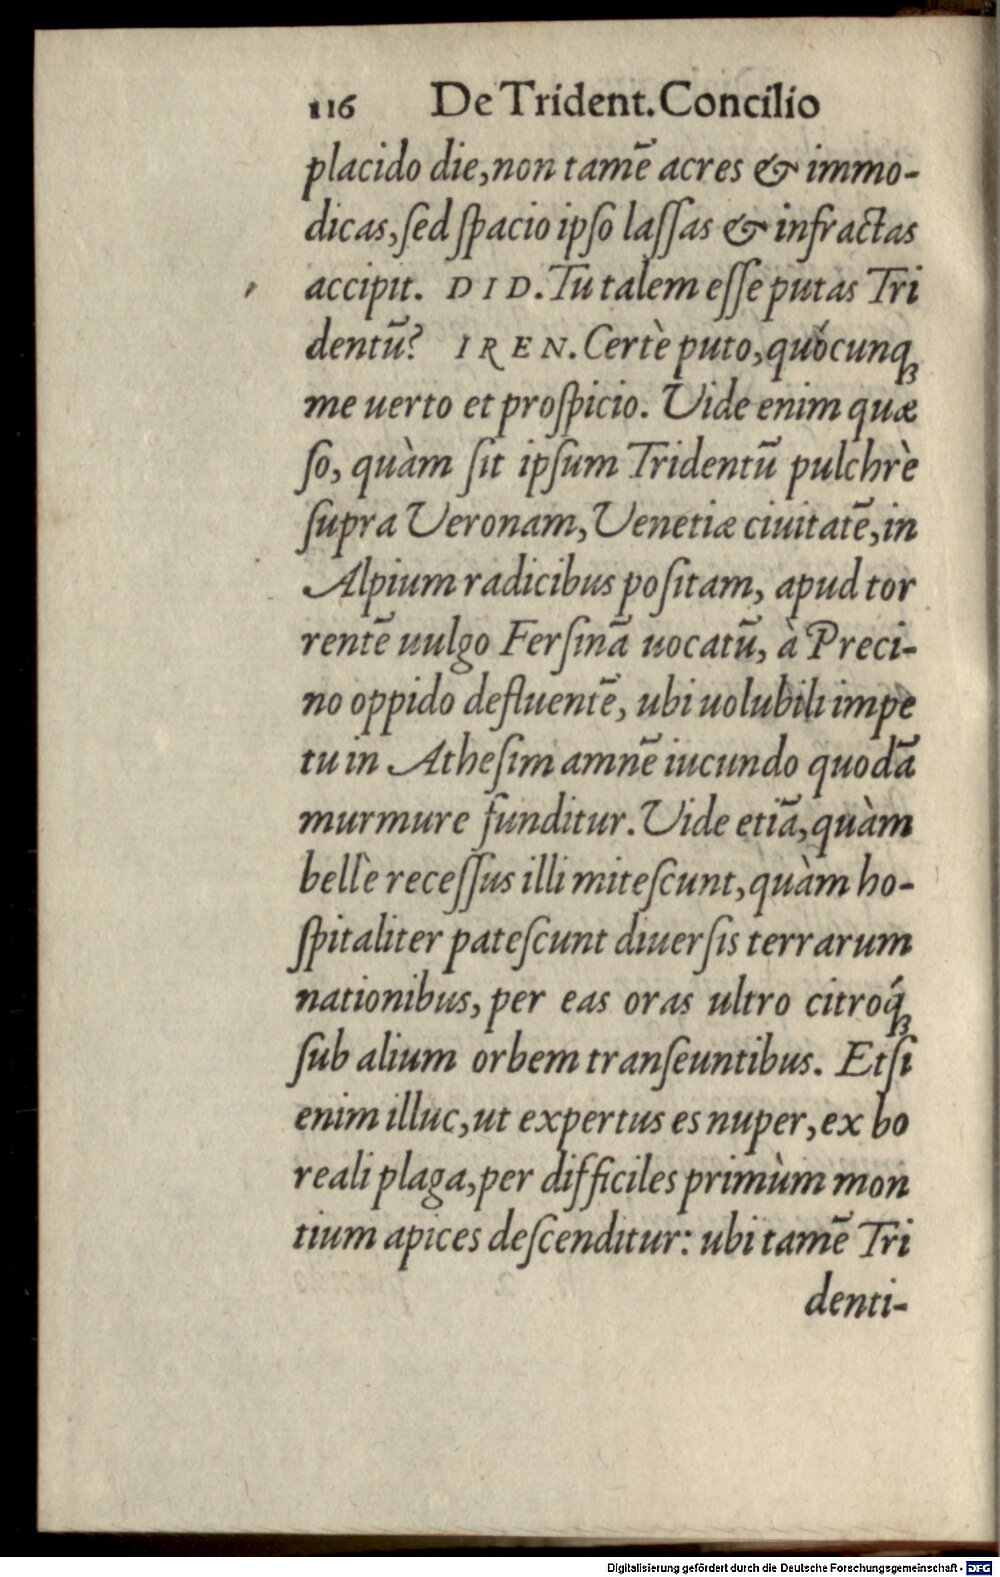 116 De Trident. Concilio
placido die, non tamē acres & immo-
dicas, ſed ſpacio ipſo laſſas & infractas
accipit. DID. Tu talem eſſe putas Tri
dentū? IREN. Certè puto, quócunq;
me uerto et proſpicio. Uide enim quæ
ſo, quàm ſit ipſum Tridentū pulchrè
ſupra Ueronam, Uenetiæ ciuitatē, in
Alpium radicibus poſitam, apud tor
rentē uulgo Ferſinā uocatū, à Preci-
no oppido defluentē, ubi uolubili impe
tu in Atheſim amnē iucundo quodā
murmure funditur. Uide etiā, quàm
bellè receſſus illi miteſcunt, quàm ho-
ſpitaliter pateſcunt diuerſis terrarum
nationibus, per eas oras ultro citroq́;
ſub alium orbem tranſeuntibus. Etſi
enim illuc, ut expertus es nuper, ex bo
reali plaga, per difficiles primùm mon
tium apices deſcenditur: ubi tamē Tri
denti-
Digitalisierung gefördert durch die Deutsche Forschungsgemeinschaft - DFG